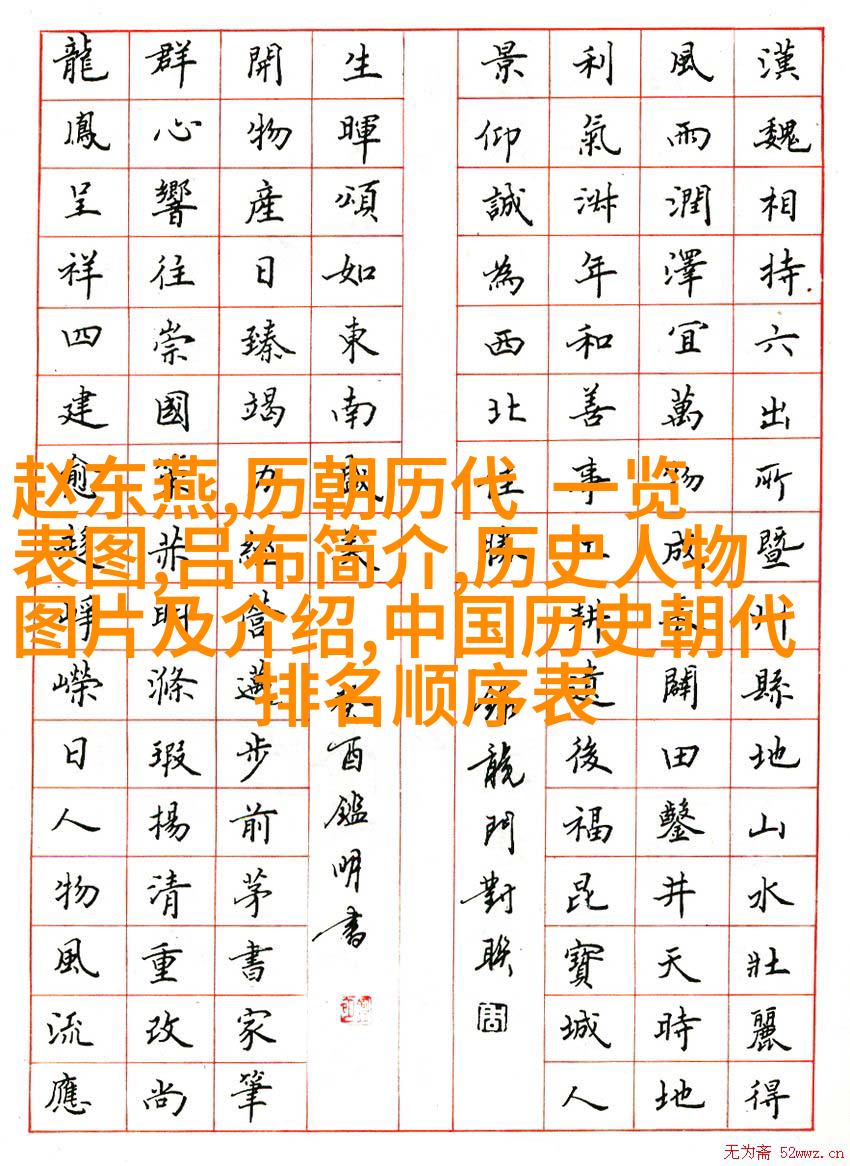 赵东燕,历朝历代 一览
表图,吕布简介,历史人物
图片及介绍,中国历史朝代
排名顺序表
漢魏相持六出所暨縣地山水壯麗得
風雨潤澤宜萬物成闢田鑿井天時地
利氣淑年和善事耕遠後福昆寶城人
景仰誠為西北佳勝
錄龍門對聯
生暉頌如東南盛美
癸酉鑑明書
開物產日臻竭力經營邁步前茅書家筆
群心響往崇國明滌瑕揚清重改尚
龍鳳呈祥四建愈趨崢嶸日人物風流應
无为斋 52wwz.cn